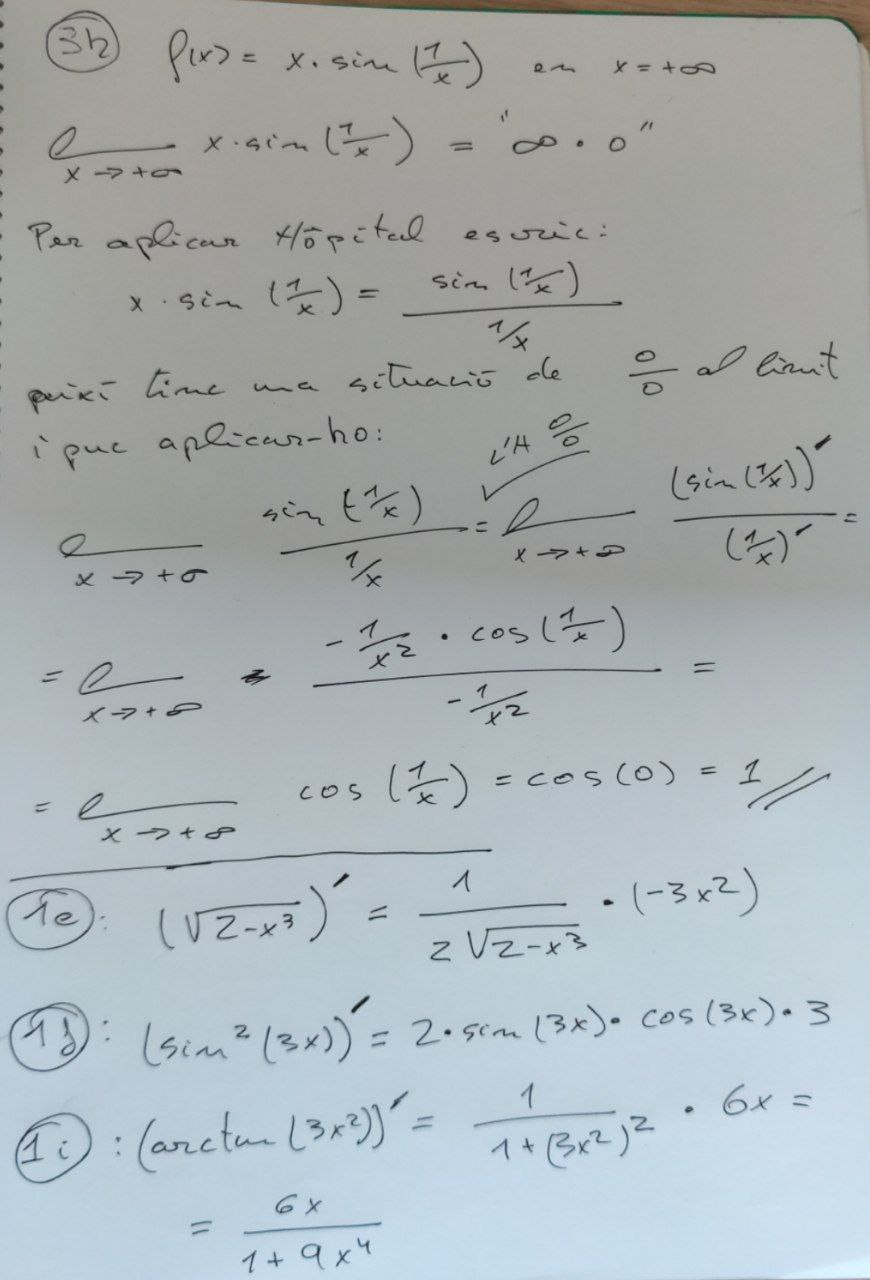 3h f(x) = x · sin (1/x) en x = +∞
l x → +∞ x · sin (1/x) = "∞ · 0"
Per aplicar Hôpital escric:
x · sin (1/x) = sin (1/x) / 1/x
així tinc una situació de 0/0 al límit
i puc aplicar-ho:
l'H 0/0
l x → +∞ sin (1/x) / 1/x = l x → +∞ (sin (1/x))' / (1/x)' =
= l x → +∞ -1/x² · cos (1/x) / -1/x² =
= l x → +∞ cos (1/x) = cos (0) = 1 //
1e : (√2-x³)' = 1 / 2√2-x³ · (-3x²)
1g : (sin² (3x))' = 2 · sin (3x) · cos (3x) · 3
1i : (arctan (3x²))' = 1 / 1 + (3x²)² · 6x =
= 6x / 1 + 9x⁴